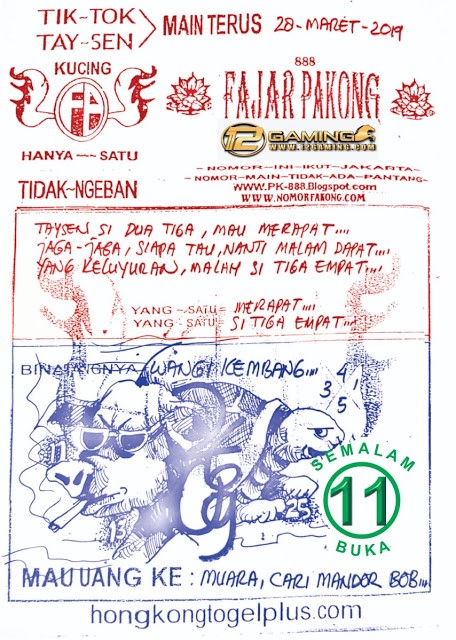 TIK~TOK
TAY~SEN
MAIN TERUS 28-MARET-2019
KUCING
HANYA~~SATU
888
FAJAR PAKONG
12GAMING
WWW.12GAMING.COM
~NOMOR~INI~IKUT~JAKARTA~
~NOMOR~MAIN~TIDAK~ADA~PANTANG~
TIDAK~NGEBAN
WWW.PK-888.Blogspot.com
WWW.NOMORPAKONG.COM
TAYSEN SI DUA TIGA, MAU MERAPAT....
JAGA-JAGA, SIAPA TAU, NANTI MALAM DAPAT....
YANG KELUYURAN, MALAH SI TIGA EMPAT....
YANG~SATU= MERAPAT....
YANG~SATU= SI TIGA EMPAT....
BINATANGNYA WANGI KEMBANG....
3 4 1
5
11
13
25
SEMALAM
11
BUKA
MAU UANG KE : MUARA, CARI MANDOR BOB....
hongkongtogelplus.com